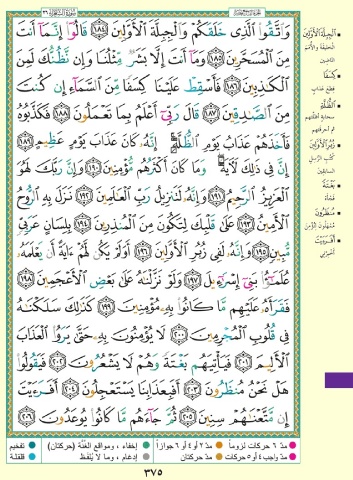 سُورَةُ الشُّعَرَاءِ ٢٦
وَٱتَّقُوا۟ ٱلَّذِى خَلَقَكُمْ وَٱلْجِبِلَّةَ ٱلْأَوَّلِينَ ١٨٤ قَالُوٓا۟ إِنَّمَآ أَنتَ
مِنَ ٱلْمُسَحَّرِينَ ١٨٥ وَمَآ أَنتَ إِلَّا بَشَرٌ مِّثْلُنَا وَإِن نَّظُنُّكَ لَمِنَ
ٱلْكَـٰذِبِينَ ١٨٦ فَأَسْقِطْ عَلَيْنَا كِسَفًا مِّنَ ٱلسَّمَآءِ إِن كُنتَ
مِنَ ٱلصَّـٰدِقِينَ ١٨٧ قَالَ رَبِّىٓ أَعْلَمُ بِمَا تَعْمَلُونَ ١٨٨ فَكَذَّبُوهُ
فَأَخَذَهُمْ عَذَابُ يَوْمِ ٱلظُّلَّةِ ۚ إِنَّهُۥ كَانَ عَذَابَ يَوْمٍ عَظِيمٍ ١٨٩
إِنَّ فِى ذَٰلِكَ لَـَٔايَةً ۖ وَمَا كَانَ أَكْثَرُهُم مُّؤْمِنِينَ ١٩٠ وَإِنَّ رَبَّكَ لَهُوَ
ٱلْعَزِيزُ ٱلرَّحِيمُ ١٩١ وَإِنَّهُۥ لَتَنزِيلُ رَبِّ ٱلْعَـٰلَمِينَ ١٩٢ نَزَلَ بِهِ ٱلرُّوحُ
ٱلْأَمِينُ ١٩٣ عَلَىٰ قَلْبِكَ لِتَكُونَ مِنَ ٱلْمُنذِرِينَ ١٩٤ بِلِسَانٍ عَرَبِىٍّ
مُّبِينٍ ١٩٥ وَإِنَّهُۥ لَفِى زُبُرِ ٱلْأَوَّلِينَ ١٩٦ أَوَلَمْ يَكُن لَّهُمْ ءَايَةً أَن يَعْلَمَهُۥ
عُلَمَـٰٓؤُا۟ بَنِىٓ إِسْرَٰٓءِيلَ ١٩٧ وَلَوْ نَزَّلْنَـٰهُ عَلَىٰ بَعْضِ ٱلْأَعْجَمِينَ ١٩٨
فَقَرَأَهُۥ عَلَيْهِم مَّا كَانُوا۟ بِهِۦ مُؤْمِنِينَ ١٩٩ كَذَٰلِكَ سَلَكْنَـٰهُ
فِى قُلُوبِ ٱلْمُجْرِمِينَ ٢٠٠ لَا يُؤْمِنُونَ بِهِۦ حَتَّىٰ يَرَوُا۟ ٱلْعَذَابَ
ٱلْأَلِيمَ ٢٠١ فَيَأْتِيَهُم بَغْتَةً وَهُمْ لَا يَشْعُرُونَ ٢٠٢ فَيَقُولُوا۟
هَلْ نَحْنُ مُنظَرُونَ ٢٠٣ أَفَبِعَذَابِنَا يَسْتَعْجِلُونَ ٢٠٤ أَفَرَءَيْتَ
إِن مَّتَّعْنَـٰهُمْ سِنِينَ ٢٠٥ ثُمَّ جَآءَهُم مَّا كَانُوا۟ يُوعَدُونَ ٢٠٦
الْجِبِلَّةَ الْأَوَّلِينَ
الخليقة والأمم
الماضين
كِسَفًا
قطع عذاب
الظُّلَّةِ
سحابة أظلتهم
ثم أحرقتهم
زُبُرِ الْأَوَّلِينَ
كتب الرسل
السابقين
بَغْتَةً
فجأة
مُنظَرُونَ
ممهلون لنؤمن
أَفَرَءَيْتَ
أخبرني
مدّ ٦ حركات لزوماً مدّ ٢ أو ٤ أو ٦ جوازاً إخفاء، ومواقع الغنّة (حركتان) تفخيم
مدّ واجب ٤ أو ٥ حركات مدّ حركتان إدغام، وما لا يُلفظ قلقلة
٣٧٥